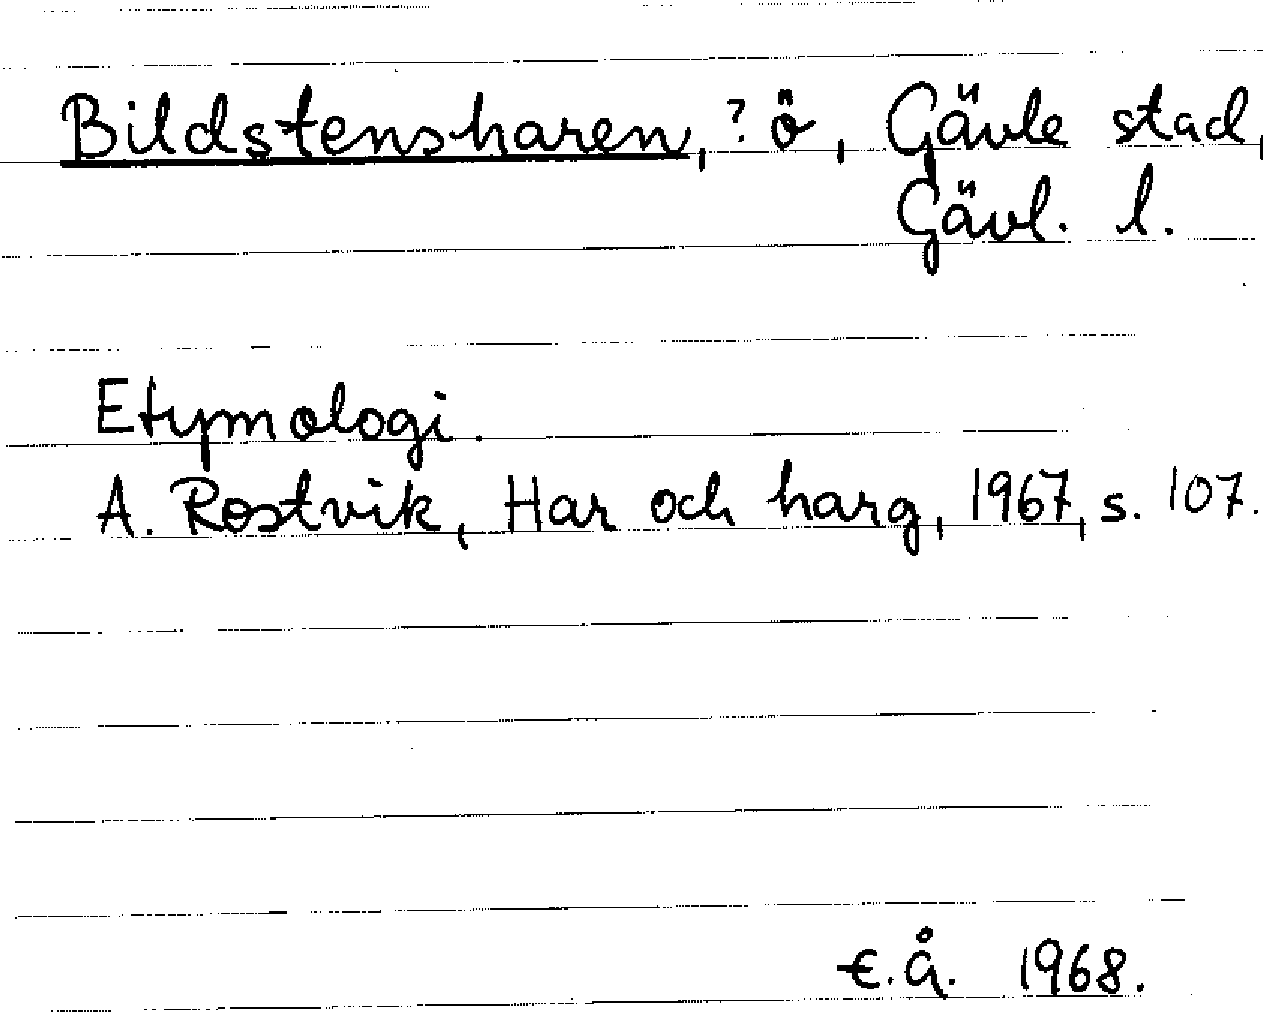 Bildstensharen, ? ö, Gävle stad,
Gävl. l.
Etymologi.
A. Rostvik, Har och harg, 1967, s. 107.
E.Å. 1968.